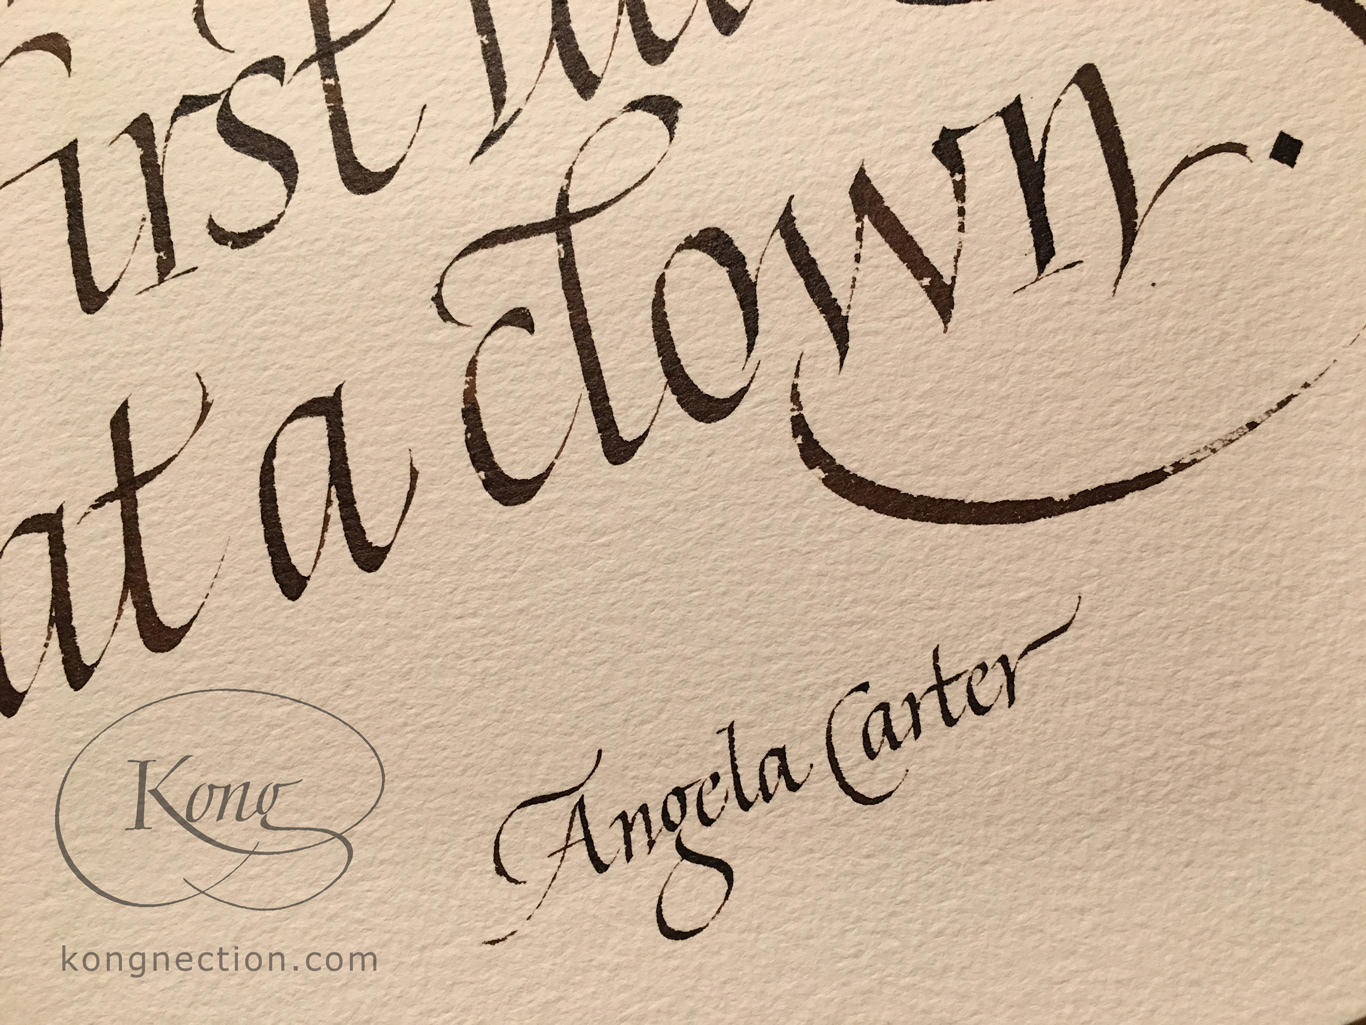 first
at a clown.
Angela Carter
Kong
kongnection.com